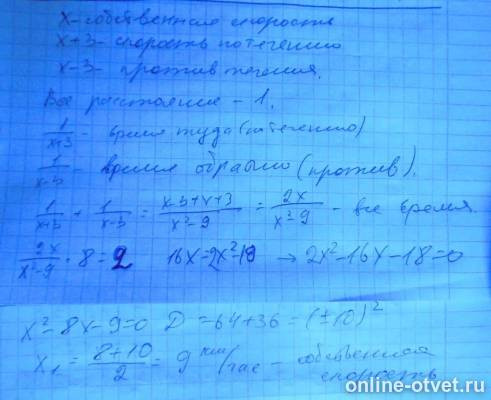 x - собственная скорость
x+3 - скорость по течению
x-3 - против течения.
Все расстояние - 1.
1/(x+3) - время туда (по течению)
1/(x-3) - время обратно (против).
1/(x+3) + 1/(x-3) = (x-3+x+3)/(x²-9) = 2x/(x²-9) - все время.
2x/(x²-9) · 8 = 2 16x = 2x²-18 → 2x²-16x-18=0
x²-8x-9=0 D = 64+36 = (±10)²
x₁ = (8+10)/2 = 9 км/час - собственная
скорость
online-otvet.ru